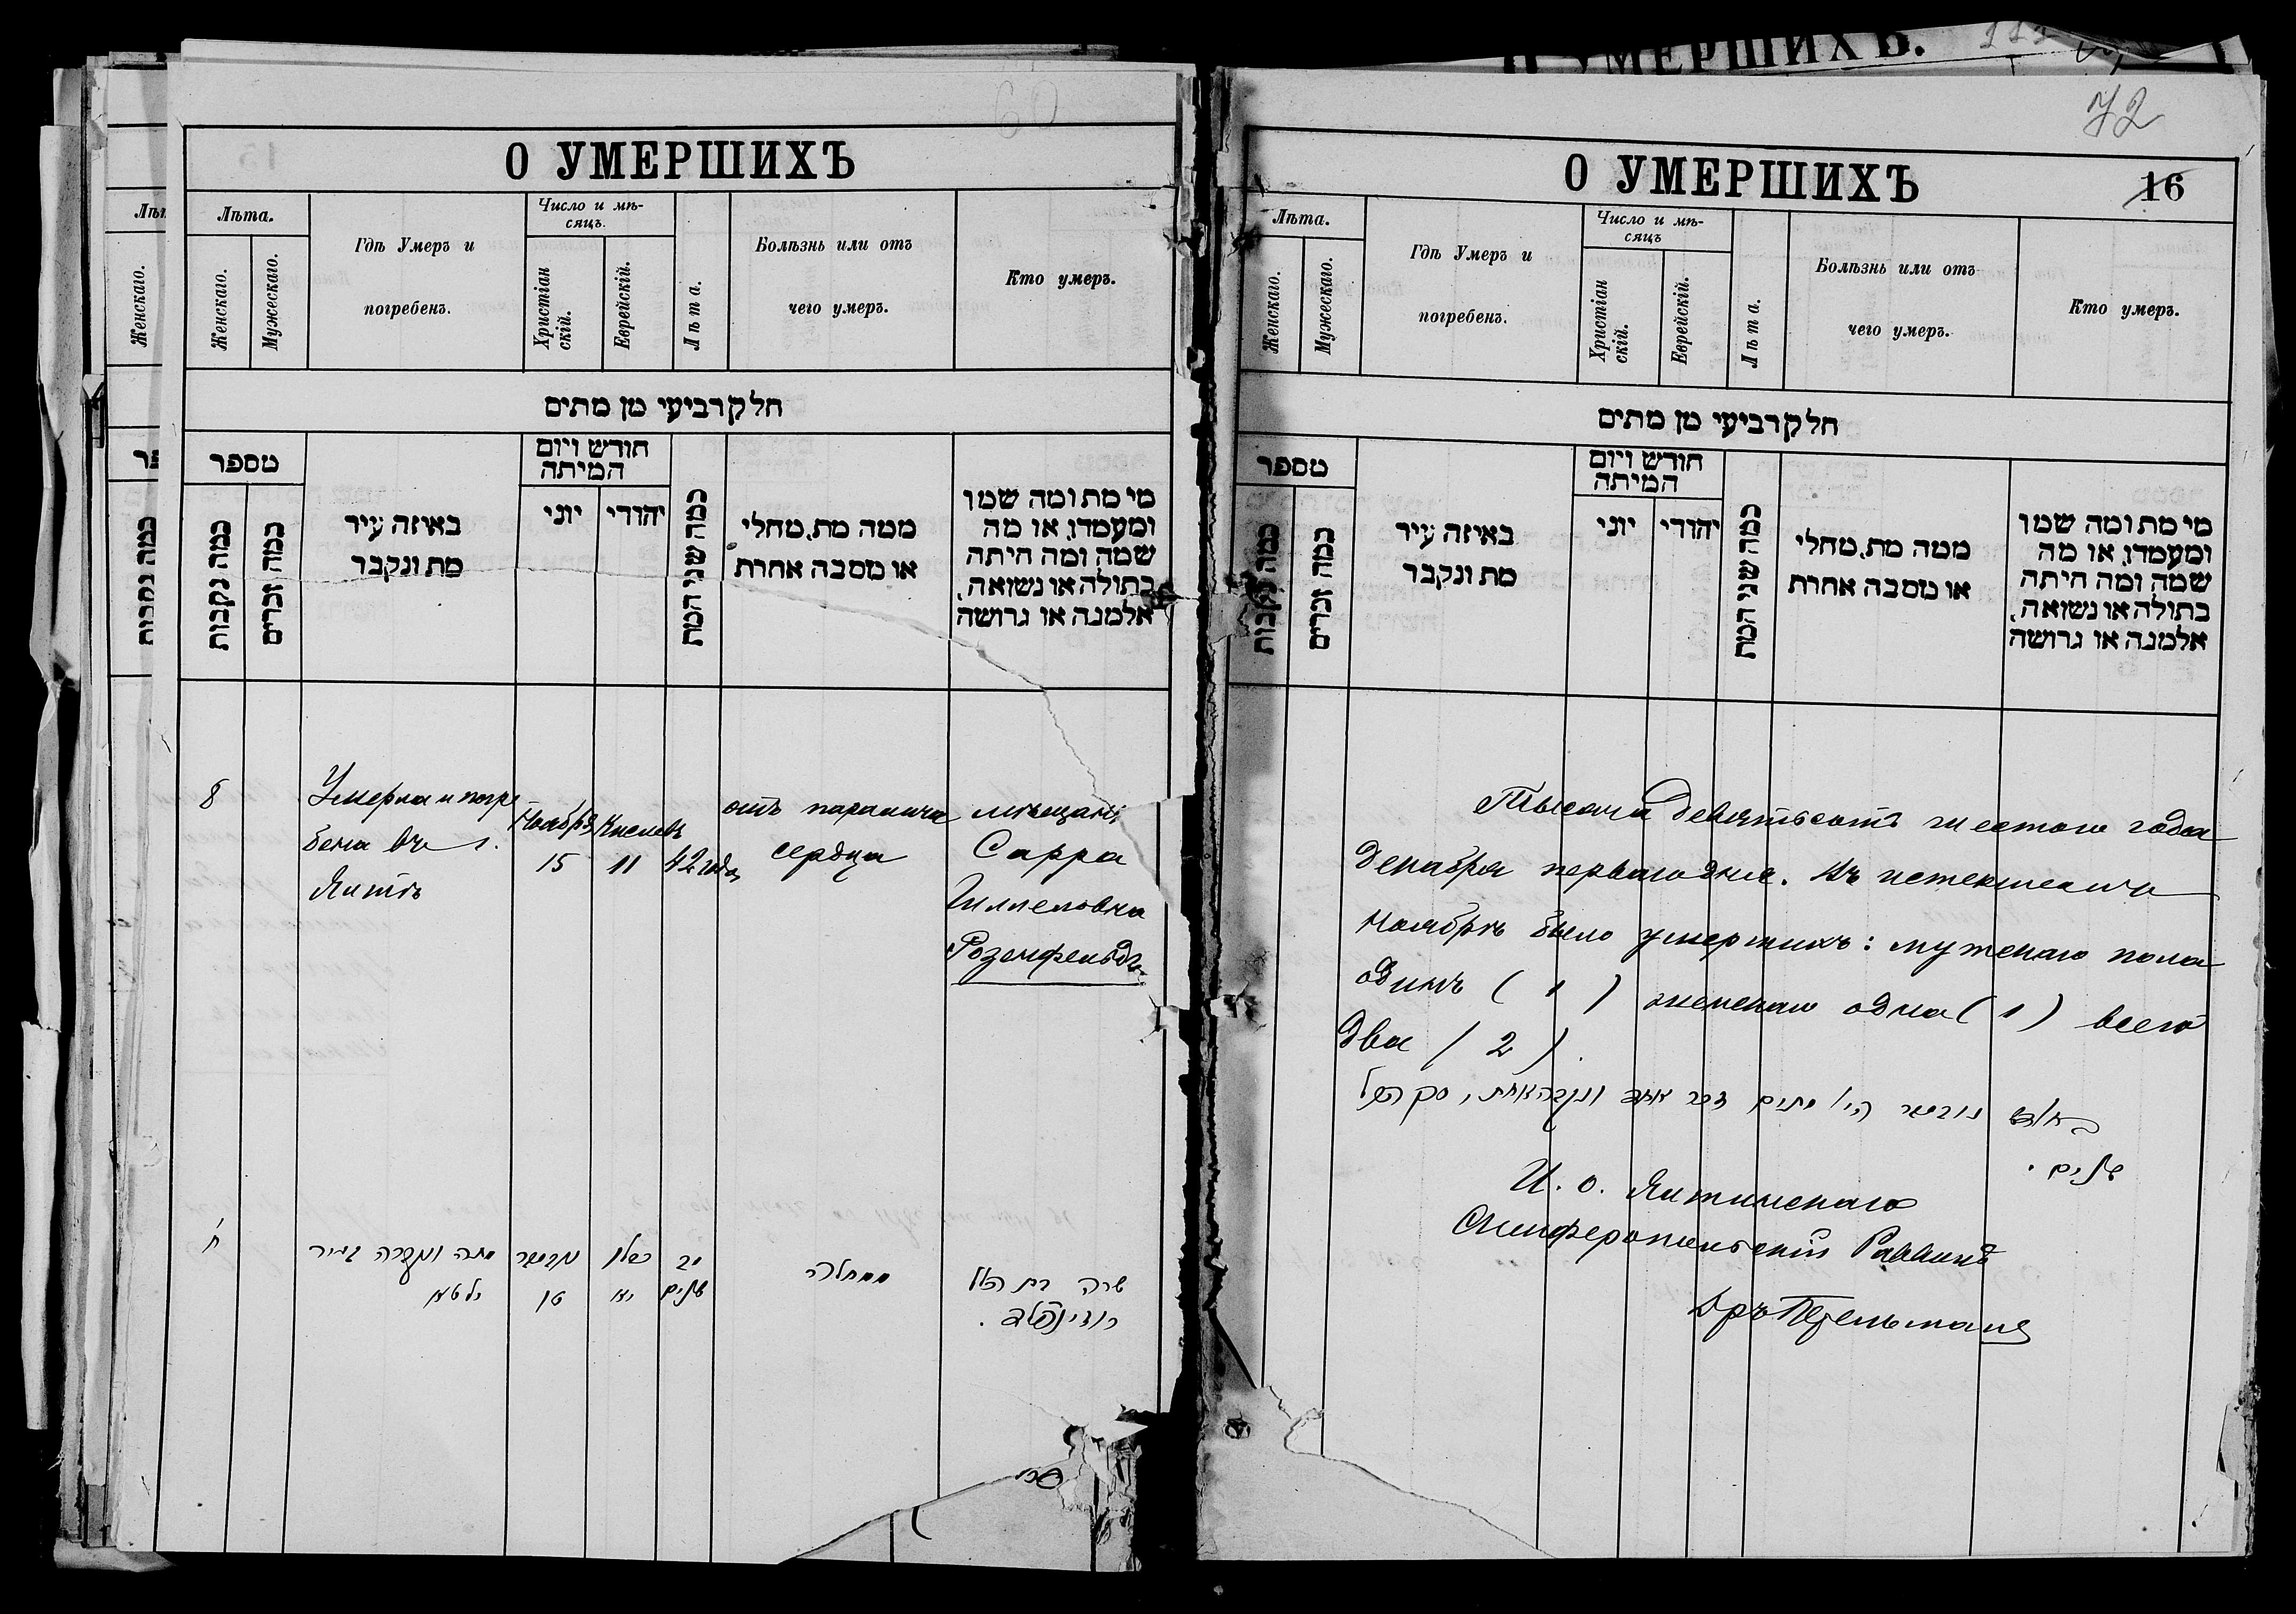 60
О УМЕРШИХЪ
Лѣта.
Женскаго.
Мужескаго.
Гдѣ Умеръ и
погребенъ.
Число и мѣ-
сяцъ.
Христіан
скій.
Еврейскій.
Лѣта.
Болѣзнь или отъ
чего умеръ.
Кто умеръ.
חלק רביעי מן מתים
מספר
כמה נקבות
כמה זכרים
באיזה עיר
מת ונקבר
חודש ויום
המיתה
יוני
יהודי
כמה שני המת
ממה מת, מחלי
או מסבה אחרת
מי מת ומה שמו
ומעמדו, או מה
שמה ומה היתה
בתולה או נשואה,
אלמנה או גרושה
8
Умерла и погре
бена въ г.
Ялтѣ
Ноября
15
Кислевъ
11
42 года
отъ паралича
сердца
мѣщанка
Сарра
Розенфельдъ
ח
מתה ונקברה בעיר
יאלטא
נובעמבר
טו
כסלו
יא
מב
שנים
שרה בת
רוזינפלד.
72
О УМЕРШИХЪ
16
Лѣта.
Женскаго.
Мужескаго.
Гдѣ Умеръ и
погребенъ.
Число и мѣ-
сяцъ
Христіан
скій.
Еврейскій.
Лѣта.
Болѣзнь или отъ
чего умеръ.
Кто умеръ.
חלק רביעי מן מתים
מספר
כמה נקבות
כמה זכרים
באיזה עיר
מת ונקבר
חודש ויום
המיתה
יוני
יהודי
כמה שני המת
ממה מת, מחלי
או מסבה אחרת
מי מת ומה שמו
ומעמדו, או מה
שמה ומה היתה
בתולה או נשואה,
אלמנה או גרושה
Тысяча девятьсотъ шестого года
декабря перваго дня. Въ истекшемъ
ноябрѣ было умершихъ: мужскаго пола
одинъ (1) женскаго одна (1) всего
два (2).
בחודש נובעמבר היו מתים זכר אחד ונקבה אחת, סך הכל
שנים.
И. о. Ялтинскаго
Симферопольскій Раввинъ